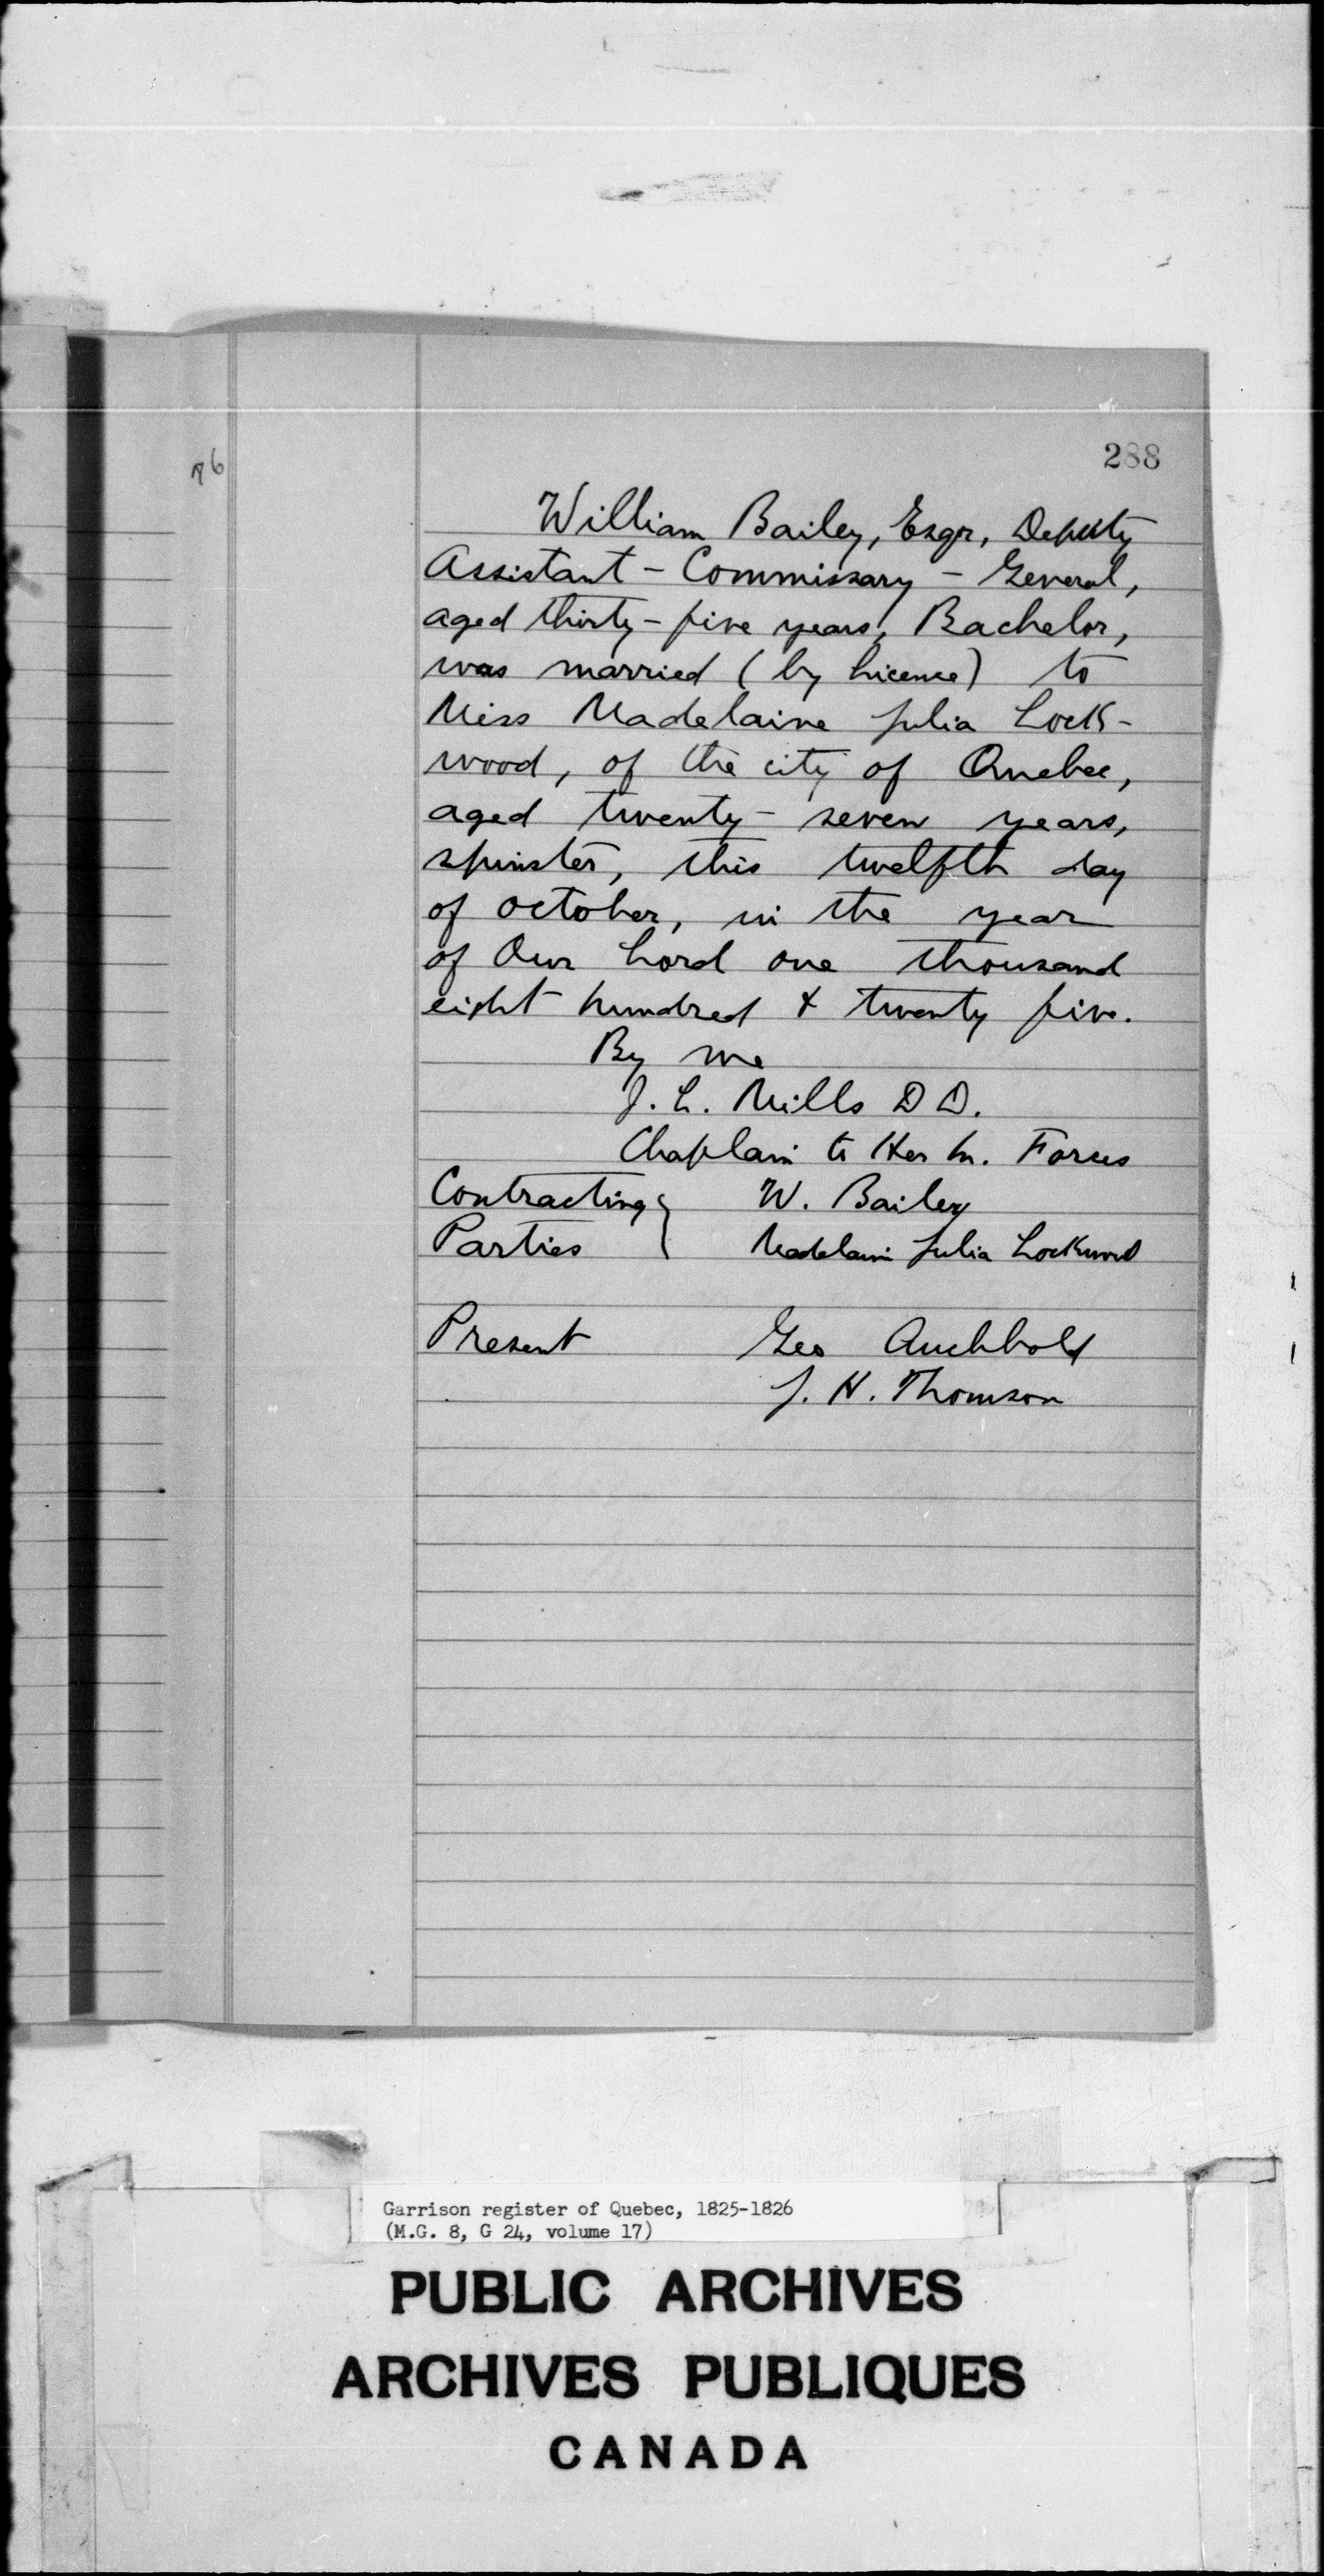 288
76
William Bailey, Esqr, Deputy
Assistant - Commissary - General,
aged thirty - five years, Bachelor,
was married (by Licence) to
Miss Madelaine Julia Lock-
wood, of the city of Quebec,
aged twenty - seven years,
spinster, this twelfth day
of October, in the year
of Our Lord one thousand
eight hundred & twenty five.
By me
J. L. Mills D D.
Chaplain to Her M. Forces
Contracting } W. Bailey
Parties Madelaine Julia Lockwood
Present Geo Auchbold
J. H. Thomson
Garrison register of Quebec, 1825-1826
(M.G. 8, G 24, volume 17)
PUBLIC ARCHIVES
ARCHIVES PUBLIQUES
CANADA